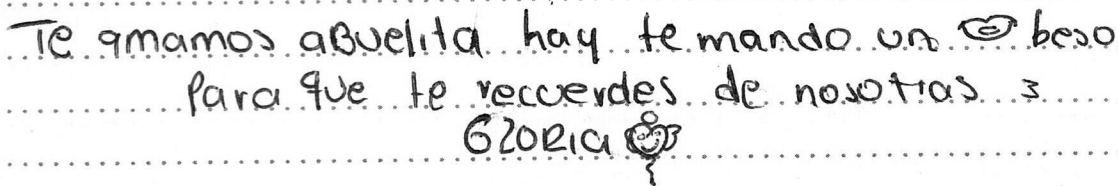 Te amamos aBuelita hay te mando un beso
Para que te recuerdes de nosotras 3
GLORIA